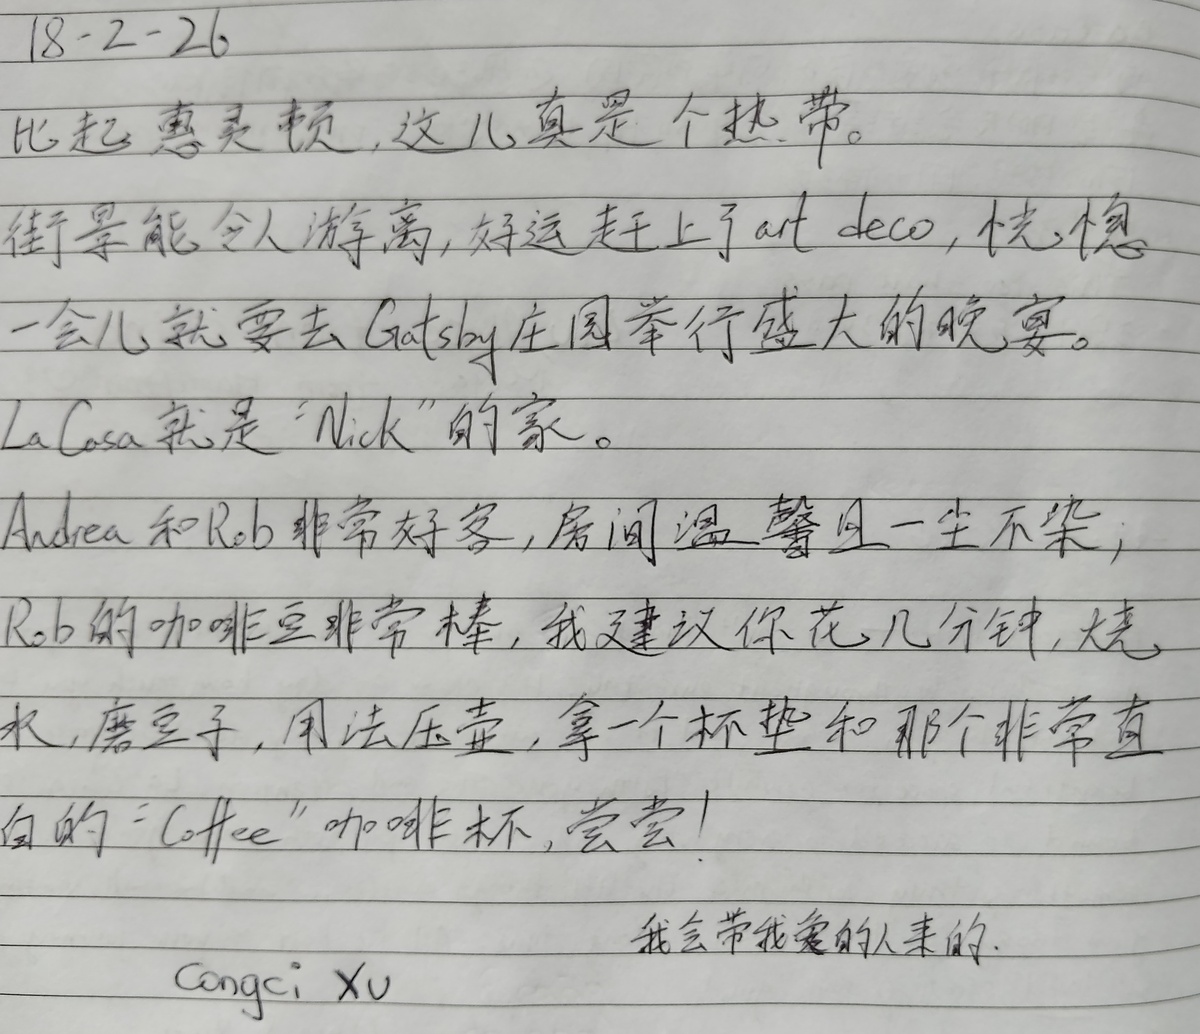 18-2-26
比起惠灵顿,这儿真是个热带。
街景能令人游离,好运赶上了art deco,恍惚
一会儿就要去Gatsby庄园举行盛大的晚宴。
La Casa就是"Nick"的家。
Andrea和Rob非常好客,房间温馨且一尘不染;
Rob的咖啡豆非常棒,我建议你花几分钟,烧
水,磨豆子,用法压壶,拿一个杯垫和那个非常直
白的"Coffee"咖啡杯,尝尝!
我会带我爱的人来的.
Congci Xu